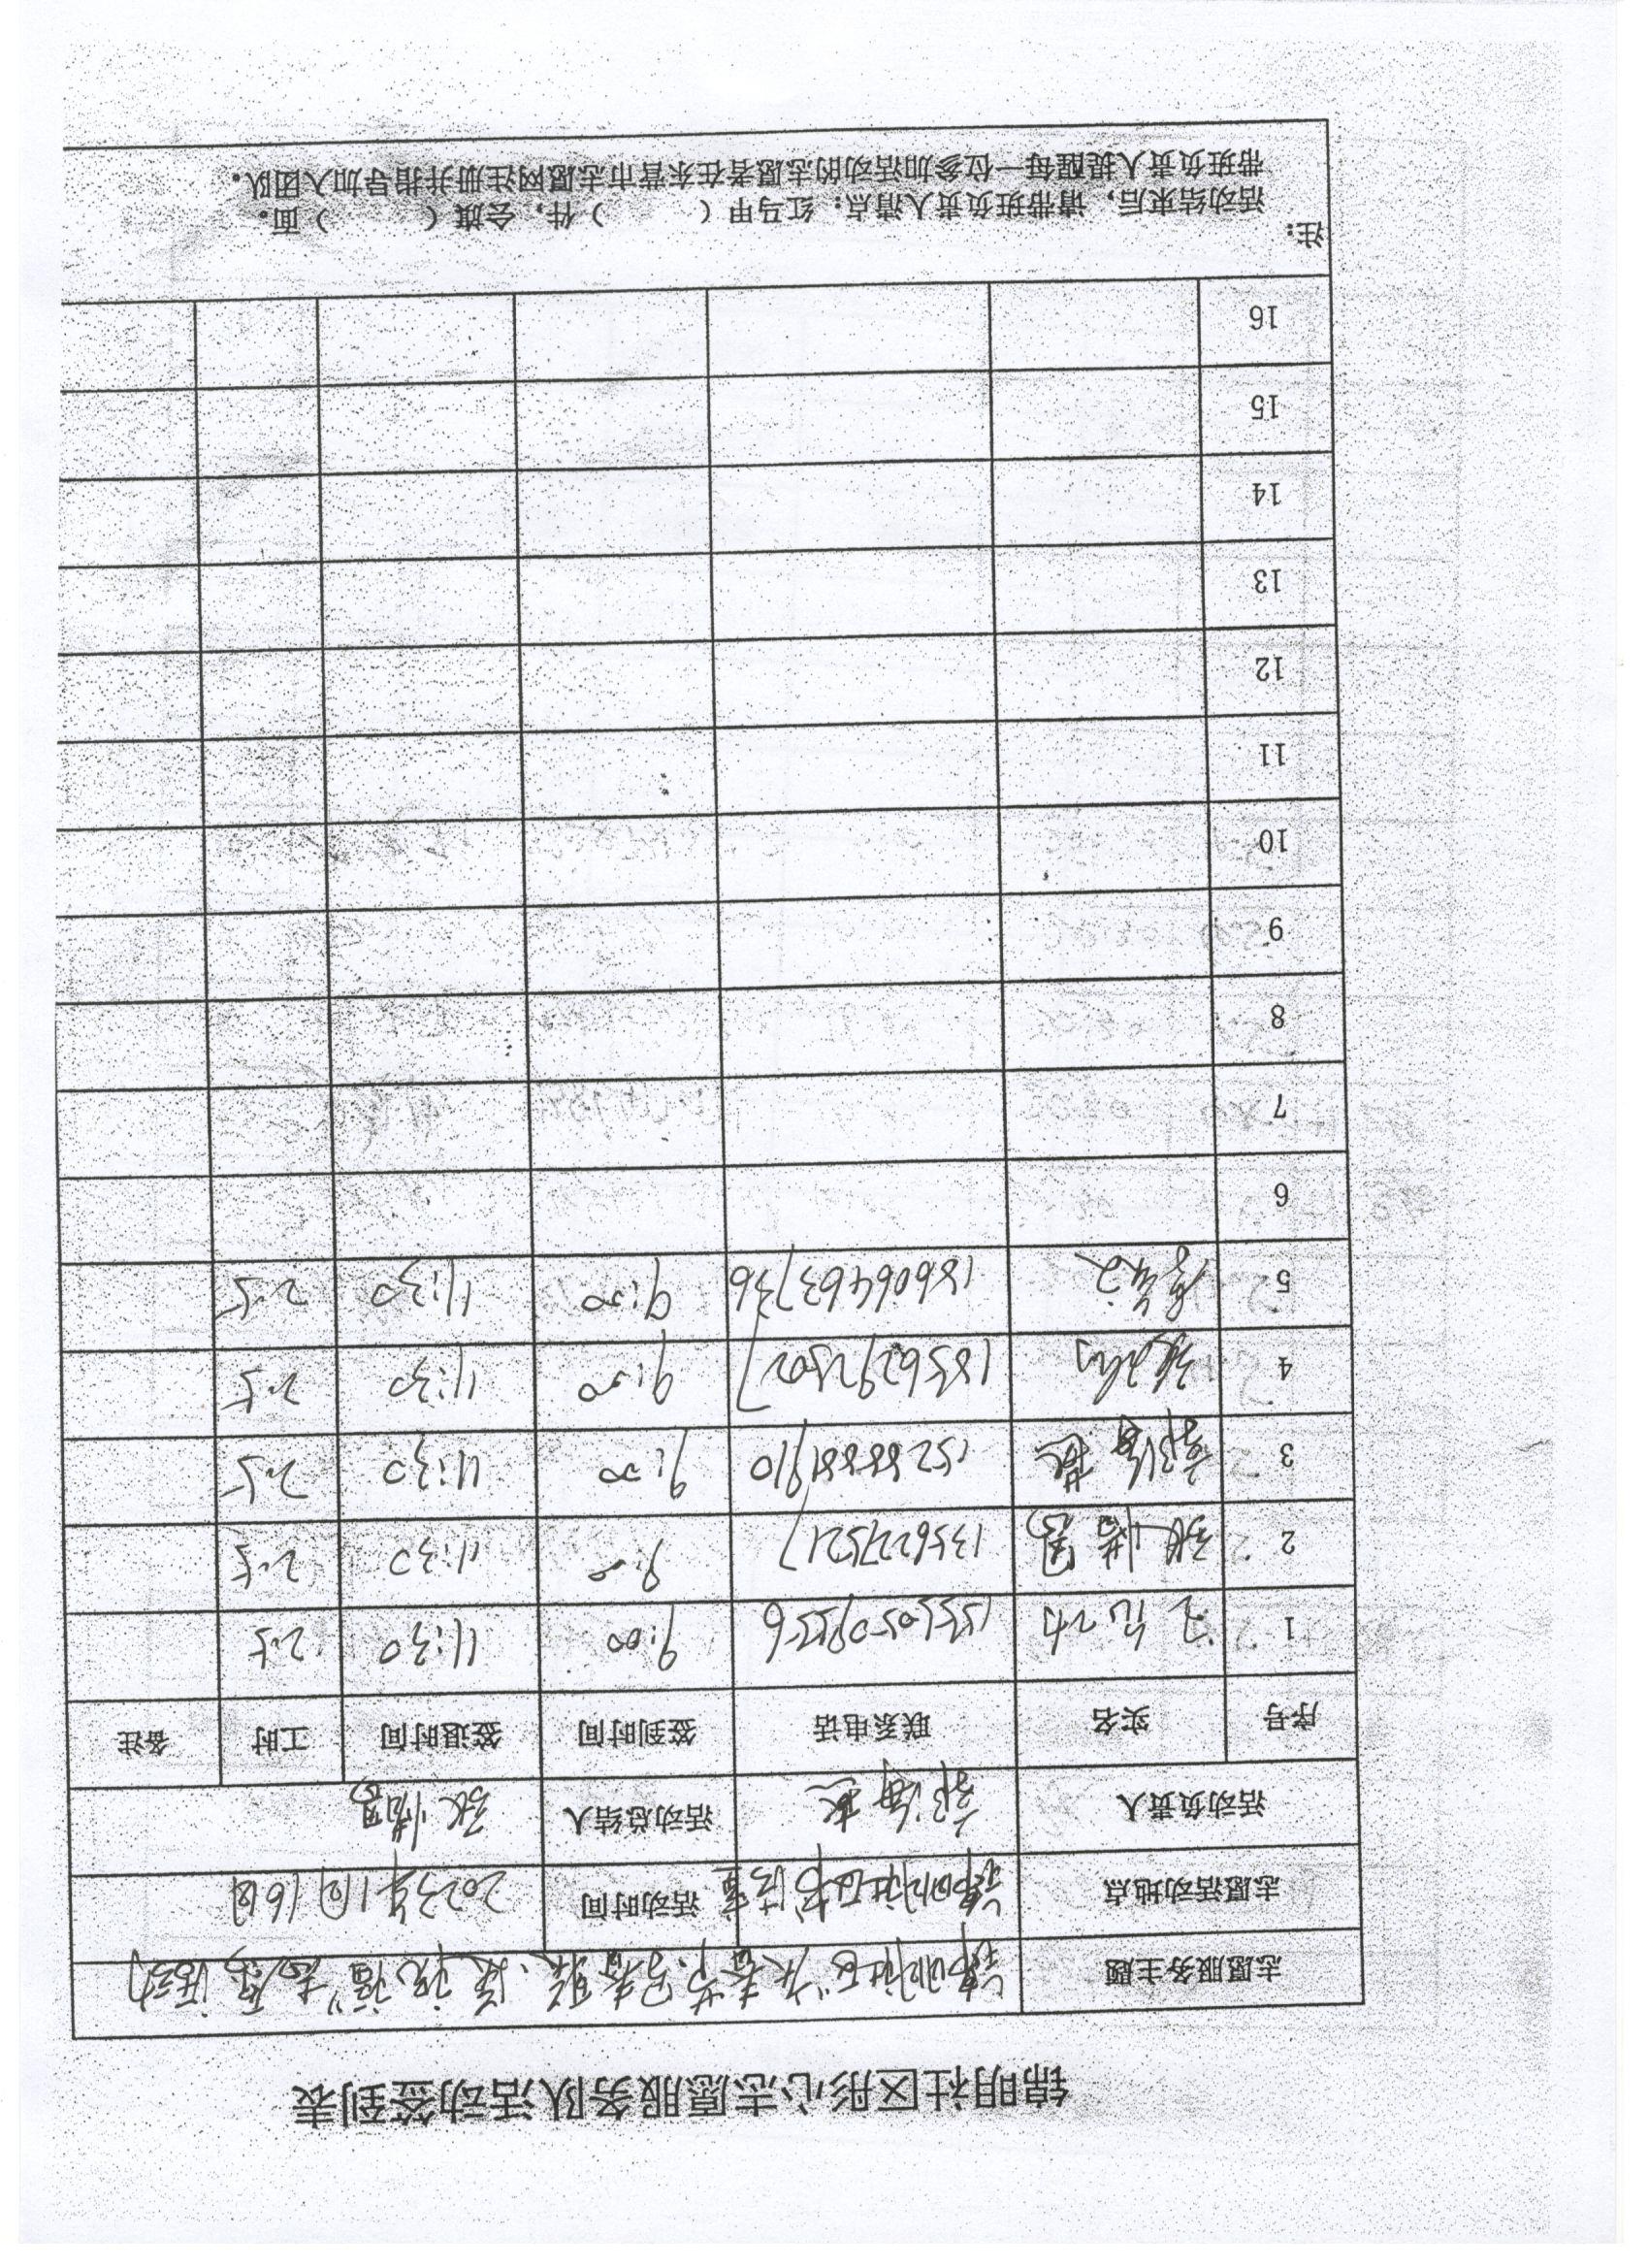 锦明社区彤心志愿服务队活动签到表
志愿服务主题 锦明社区 写春联、送祝福"志愿活动
志愿活动地点 锦明社区 活动时间 2023年1月16日
活动负责人 郭海燕 活动总结人 张惜男
序号 实名 联系电话 签到时间 签退时间 工时 备注
1 15550509556 9:00 11:30 2.5
2 张惜男 13562277521 9:00 11:30 2.5
3 郭海燕 15288881910 9:00 11:30 2.5
4 18562925027 9:00 11:30 2.5
5 18606463736 9:00 11:30 2.5
6
7
8
9
10
11
12
13
14
15
16
注:
活动结束后，请带班负责人清点：红马甲（ ）件，会旗（ ）面。
带班负责人提醒每一位参加活动的志愿者在东营市志愿网注册并指导加入团队。